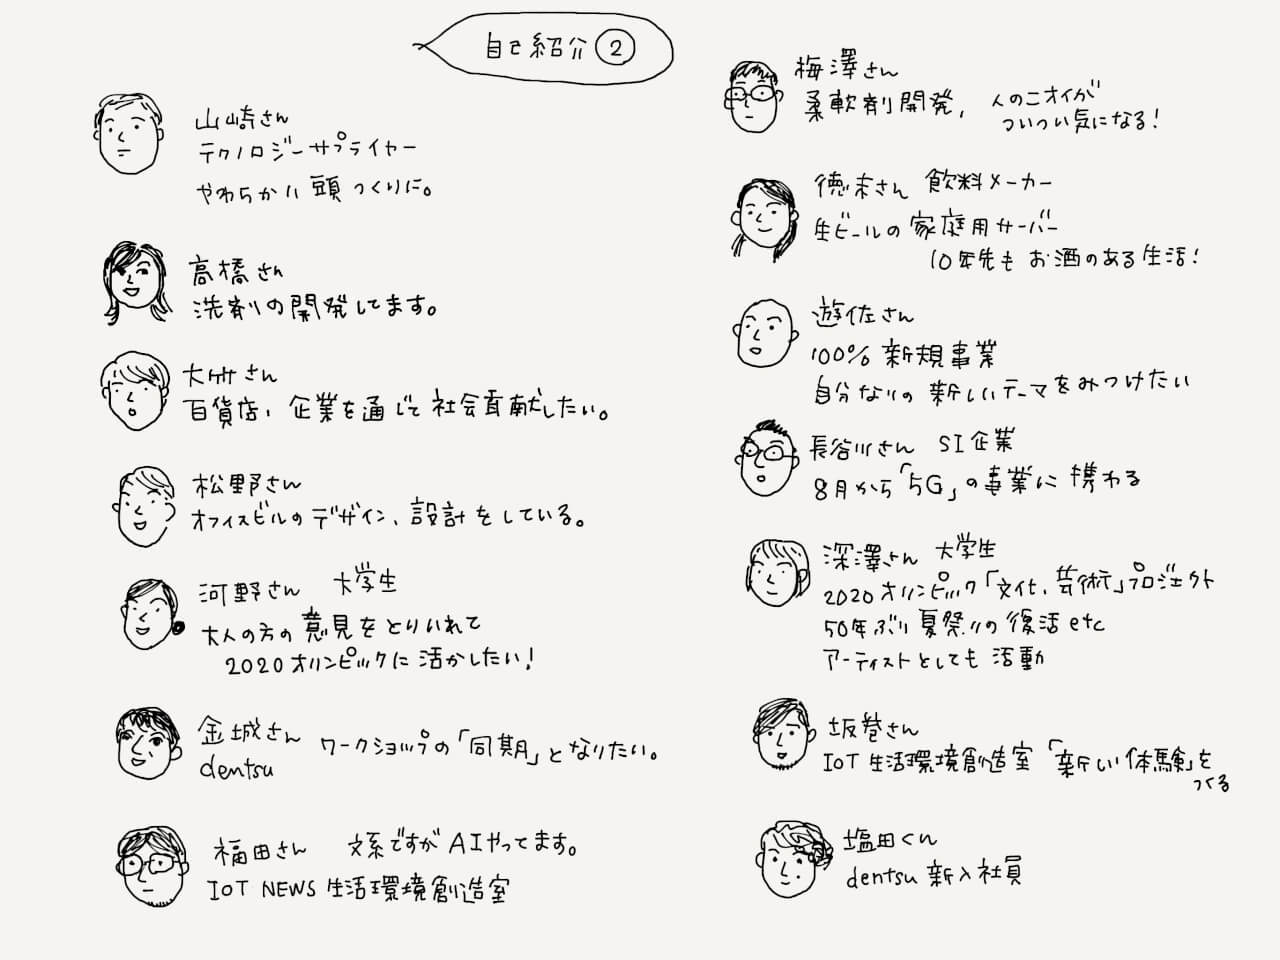 自己紹介②
山崎さん
テクノロジーサプライヤー
やわらかい頭つくりに。
高橋さん
洗剤の開発してます。
大竹さん
百貨店、企業を通じて社会貢献したい。
松野さん
オフィスビルのデザイン、設計をしている。
河野さん 大学生
大人の方の意見をとりいれて
2020オリンピックに活かしたい!
金城さん ワークショップの「同期」となりたい。
dentsu
福田さん 文系ですがAIやってます。
IoT NEWS 生活環境創造室
梅澤さん
柔軟剤開発, 人のニオイが
ついつい気になる!
徳末さん 飲料メーカー
生ビールの家庭用サーバー
10年先もお酒のある生活!
遊佐さん
100% 新規事業
自分なりの新しいテーマをみつけたい
長谷川さん SI企業
8月から「5G」の事業に携わる
深澤さん 大学生
2020オリンピック「文化、芸術」プロジェクト
50年ぶり夏祭りの復活etc
アーティストとしても活動
坂巻さん
IoT 生活環境創造室「新しい体験」を
つくる
塩田くん
dentsu 新入社員